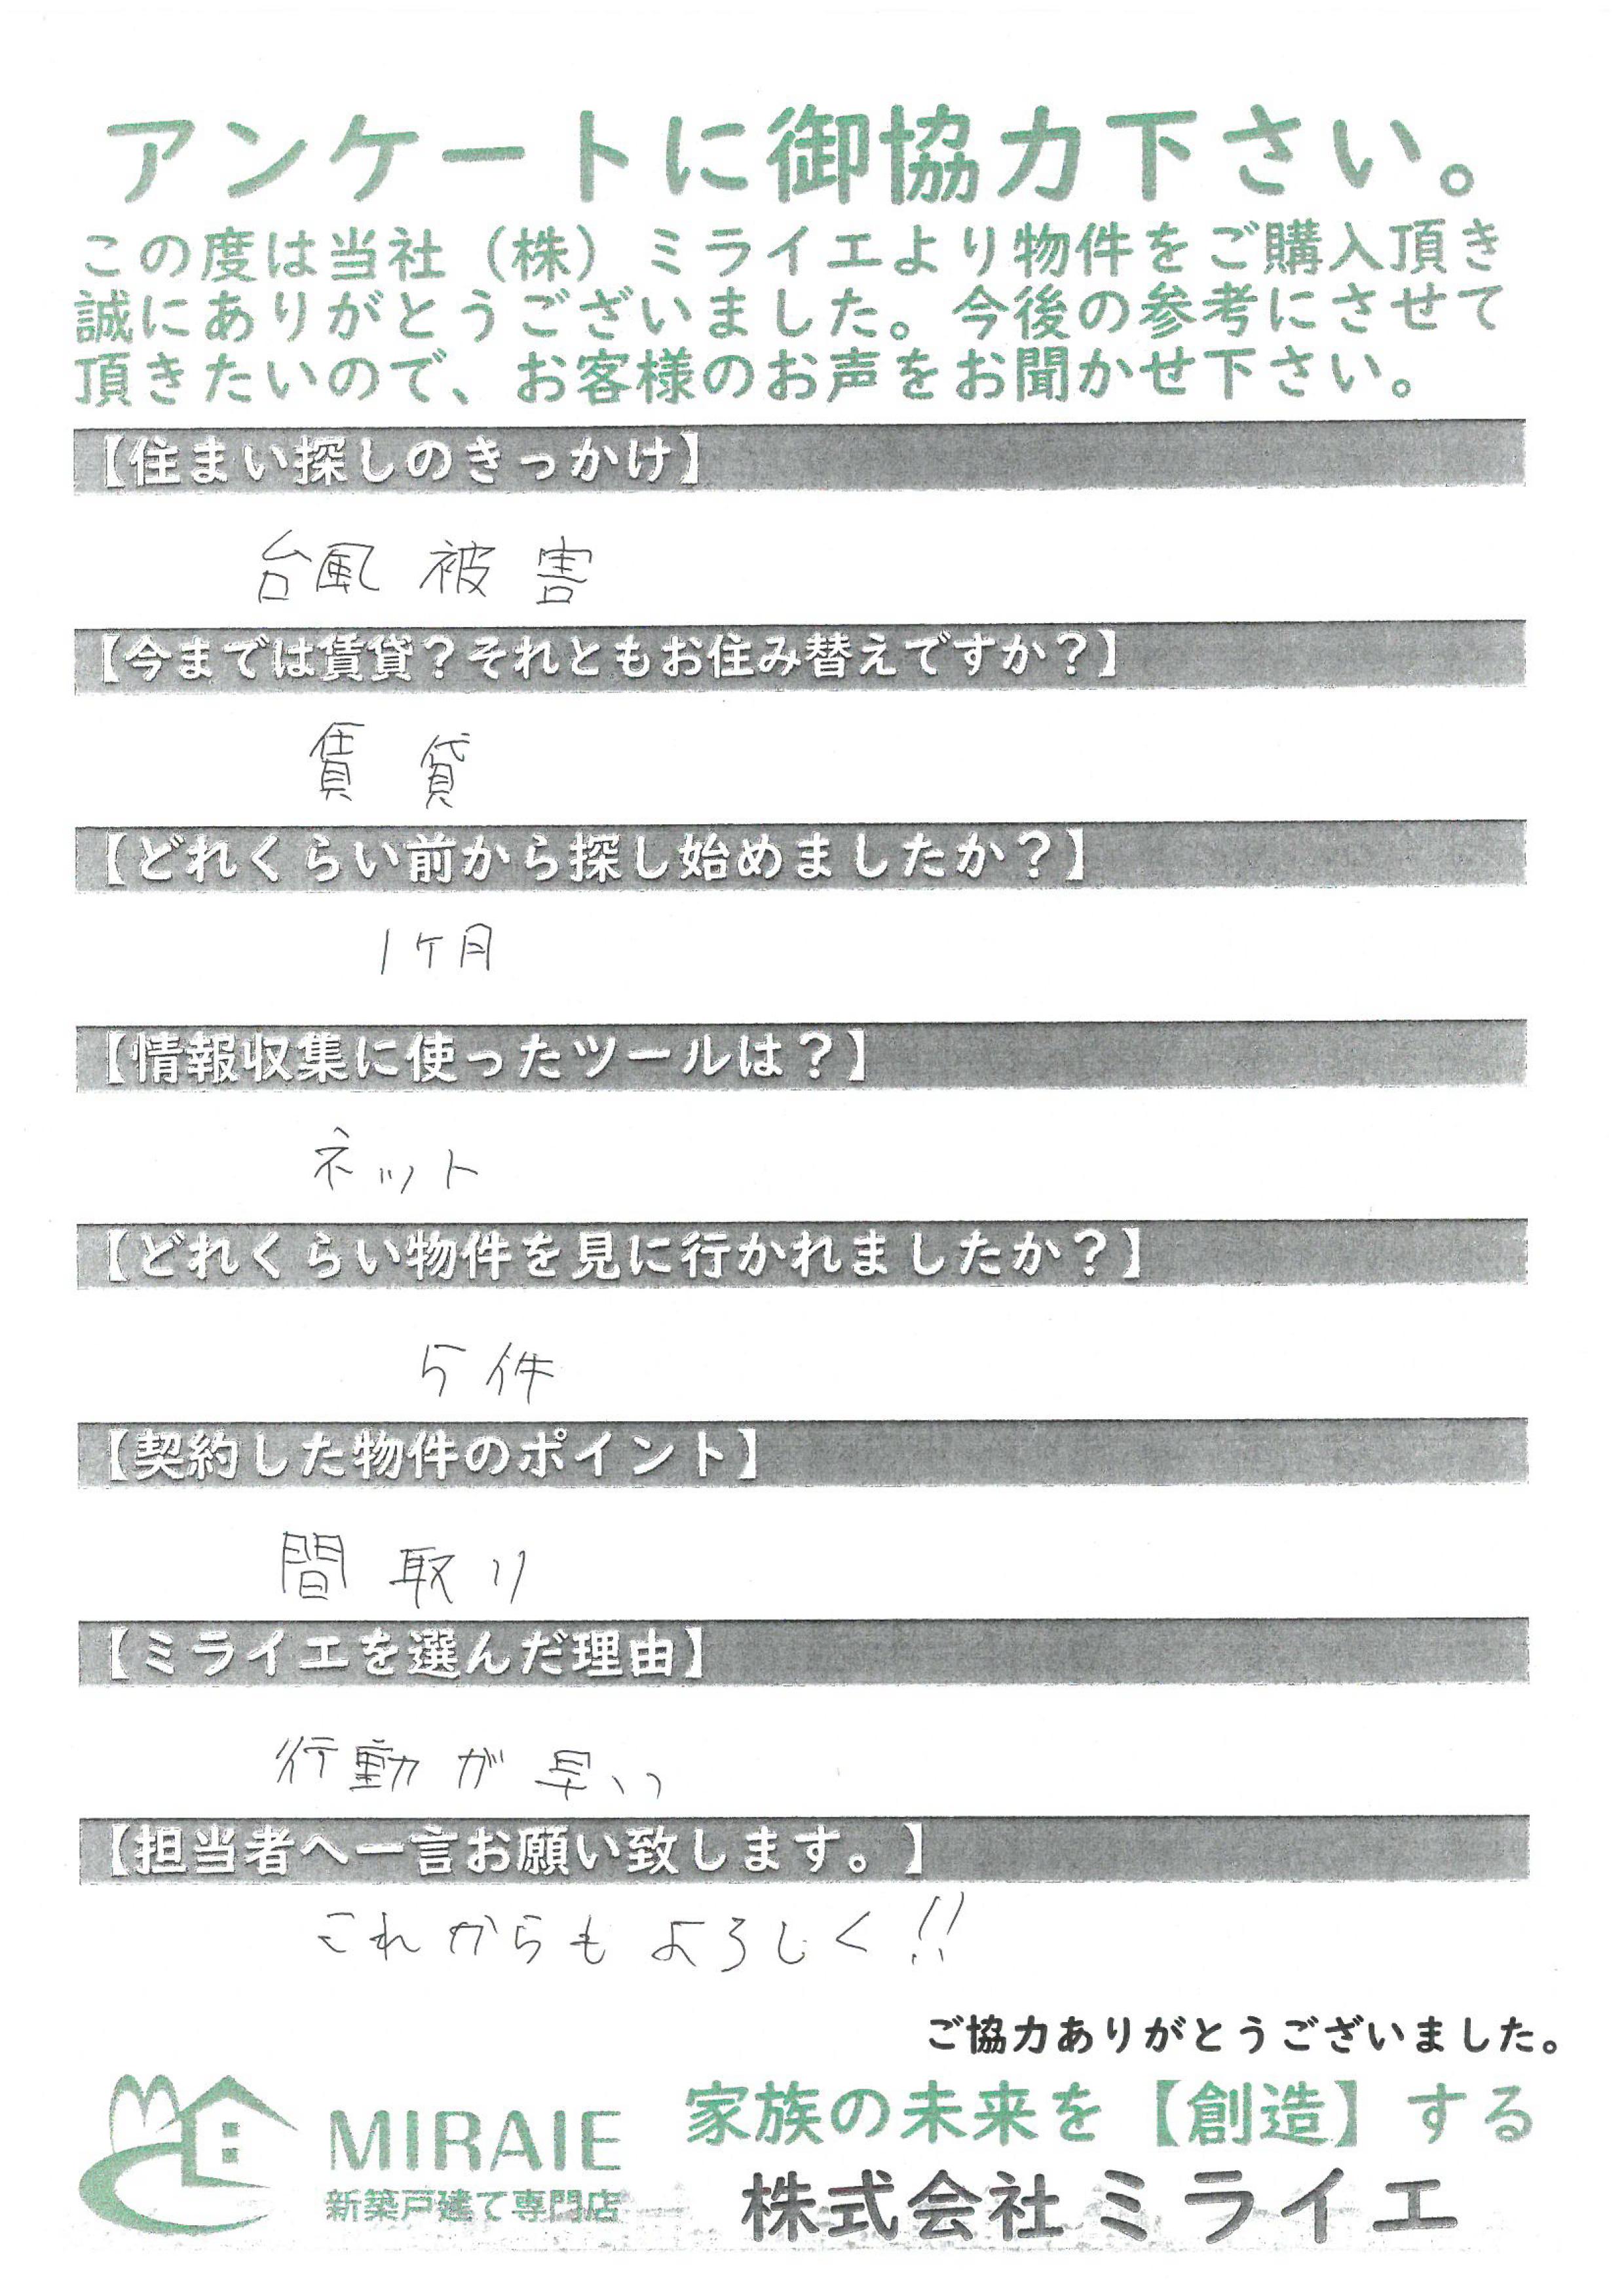 アンケートに御協力下さい。
この度は当社（株）ミライエより物件をご購入頂き
誠にありがとうございました。今後の参考にさせて
頂きたいので、お客様のお声をお聞かせ下さい。
【住まい探しのきっかけ】
台風被害
【今までは賃貸？それともお住み替えですか？】
賃貸
【どれくらい前から探し始めましたか？】
1ヶ月
【情報収集に使ったツールは？】
ネット
【どれくらい物件を見に行かれましたか？】
5件
【契約した物件のポイント】
間取り
【ミライエを選んだ理由】
行動が早い
【担当者へ一言お願い致します。】
これからもよろしく!!
ご協力ありがとうございました。
家族の未来を【創造】する
MIRAIE
新築戸建て専門店
株式会社ミライエ